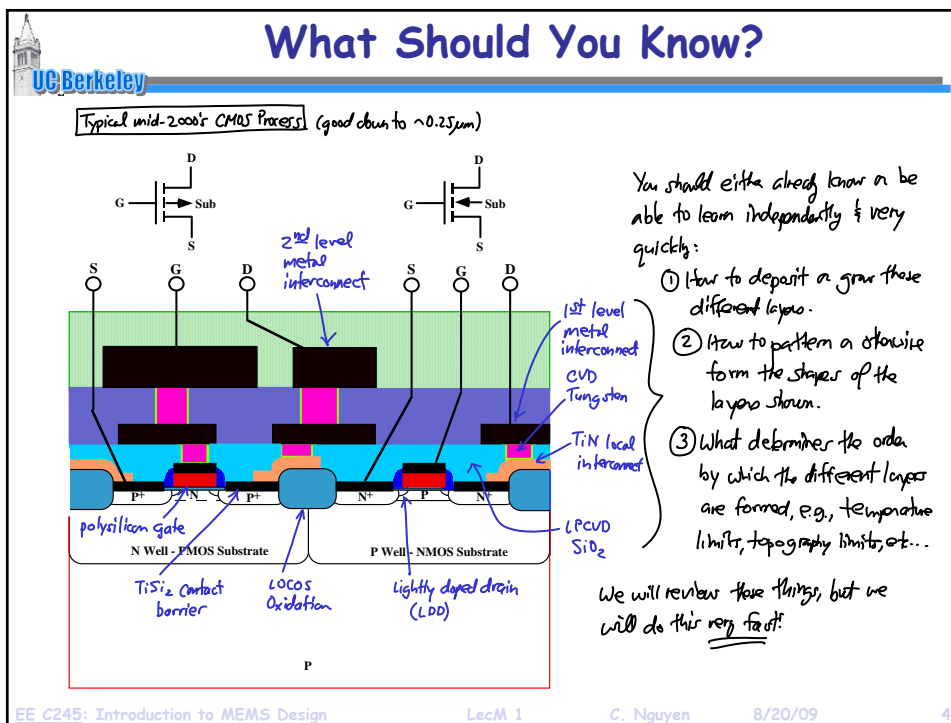 What Should You Know?
UC Berkeley
Typical mid-2000's CMOS Process (good down to ~0.25μm)
D
G
Sub
S
D
G
Sub
S
2nd level
metal
interconnect
S
G
D
S
G
D
1st level
metal
interconnect
CVD
Tungsten
TiN local
interconnect
LPCVD
SiO2
P+
N
P+
N+
P
N+
polysilicon gate
N Well - PMOS Substrate
P Well - NMOS Substrate
TiSi2 contact
barrier
LOCOS
Oxidation
Lightly doped drain
(LDD)
P
You should either already know or be
able to learn independently & very
quickly:
① How to deposit or grow these
different layers.
② How to pattern or otherwise
form the shapes of the
layers shown.
③ What determines the order
by which the different layers
are formed, e.g., temperature
limits, topography limits, etc...
We will review these things, but we
will do this very fast!
EE C245: Introduction to MEMS Design LecM 1 C. Nguyen 8/20/09 4